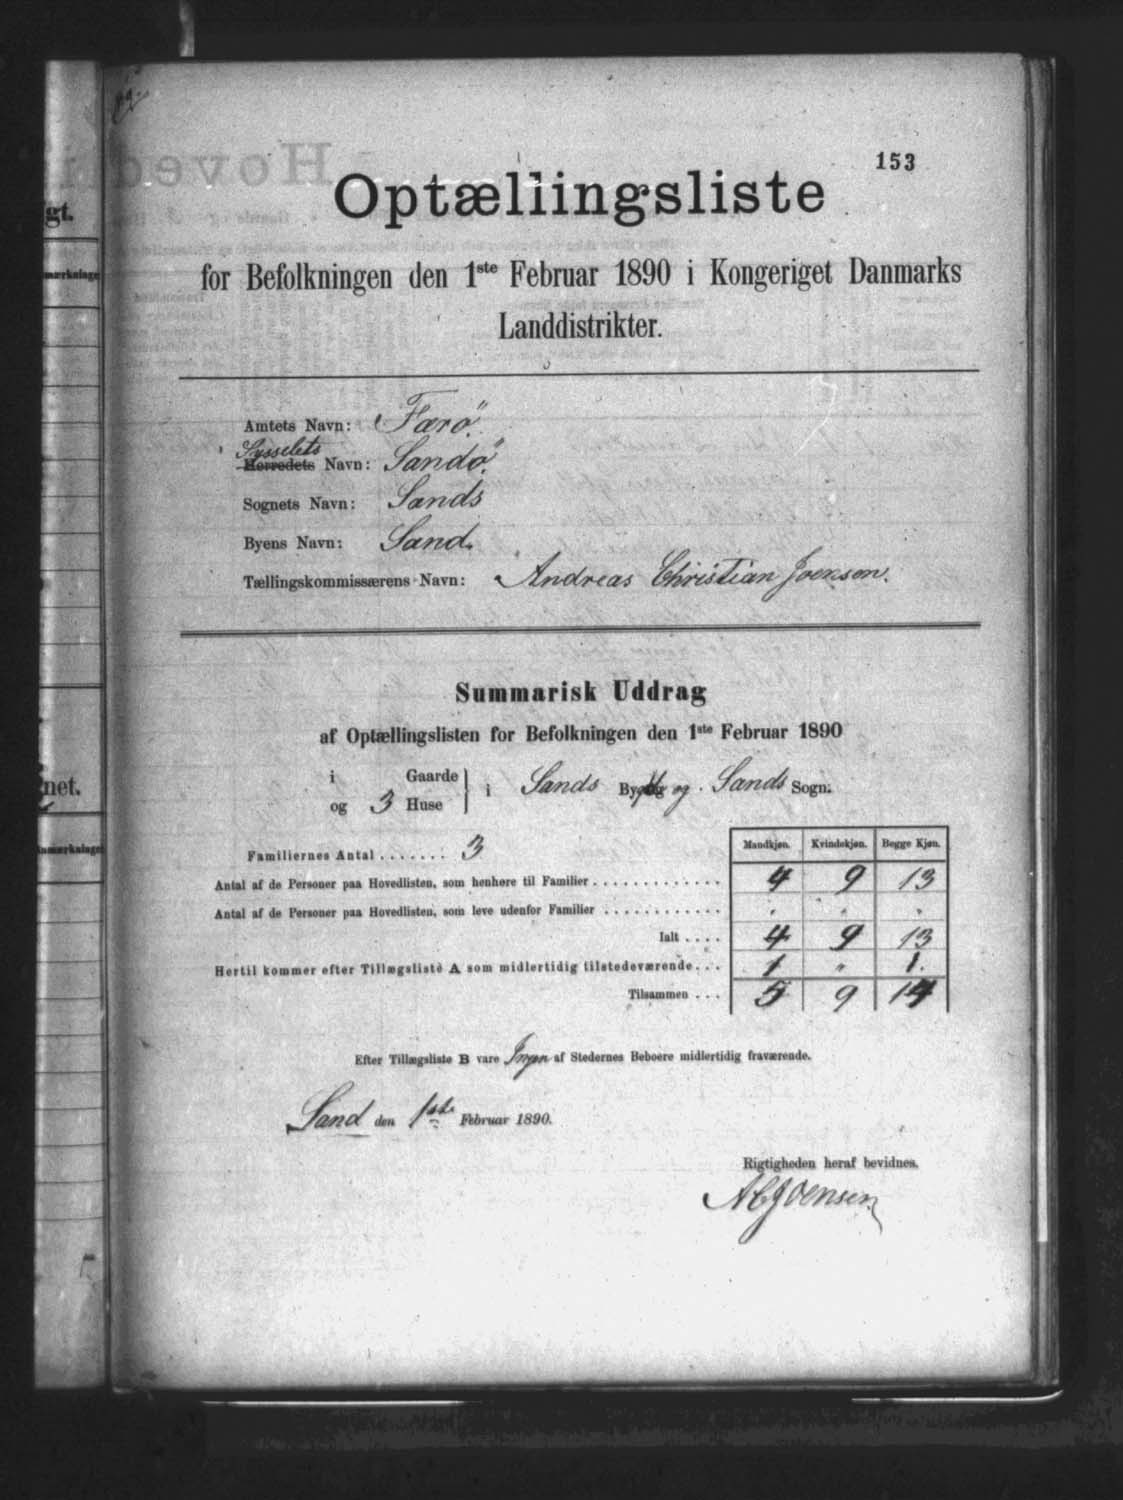 153
Optællingsliste
for Befolkningen den 1ste Februar 1890 i Kongeriget Danmarks
Landdistrikter.
Amtets Navn: Færø.
Sysselets
Herredets Navn: Sandø.
Sognets Navn: Sands
Byens Navn: Sand.
Tællingskommissærens Navn: Andreas Christian Joensen.
Summarisk Uddrag
af Optællingslisten for Befolkningen den 1ste Februar 1890
i Gaarde
og 3 Huse
i Sands By og Sands Sogn.
Mandkjøn. Kvindekjøn. Begge Kjøn.
Familiernes Antal ....... 3
Antal af de Personer paa Hovedlisten, som henhøre til Familier ............. 4 9 13
Antal af de Personer paa Hovedlisten, som leve udenfor Familier ............ " " "
Ialt .... 4 9 13
Hertil kommer efter Tillægsliste A som midlertidig tilstedeværende... 1 " 1.
Tilsammen ... 5 9 14
Efter Tillægsliste B vare Ingen af Stedernes Beboere midlertidig fraværende.
Sand den 1ste Februar 1890.
Rigtigheden heraf bevidnes.
ACJoensen
gt.
net.